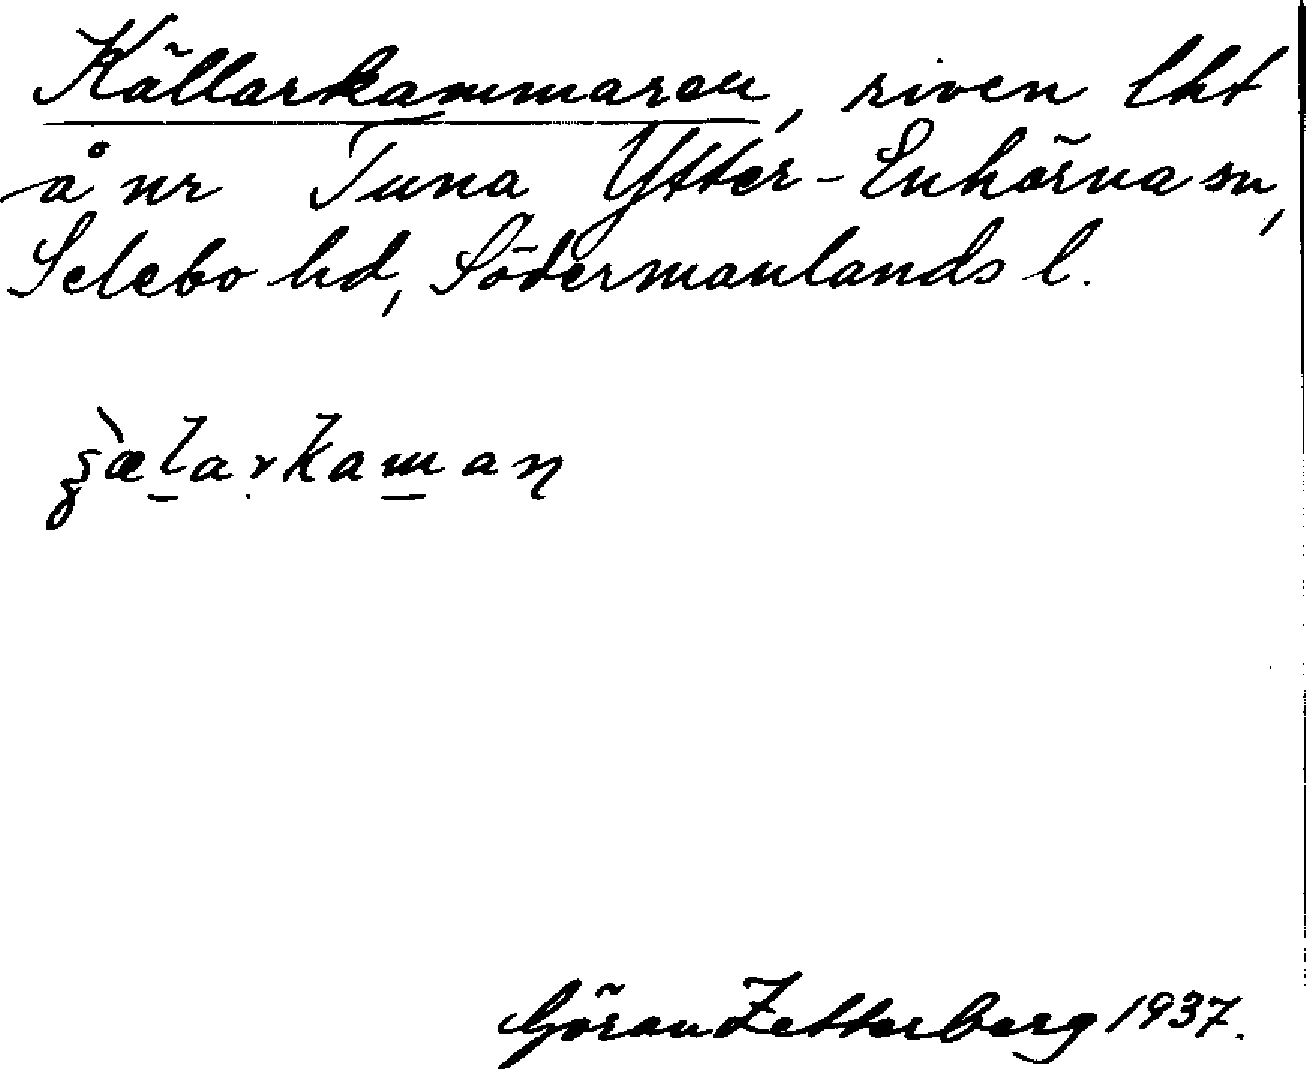 Källarkammaren, riven lht
å nr Tuna Ytter-Enhörna sn,
Selebo hd, Södermanlands l.
Göran Zetterberg 1937.